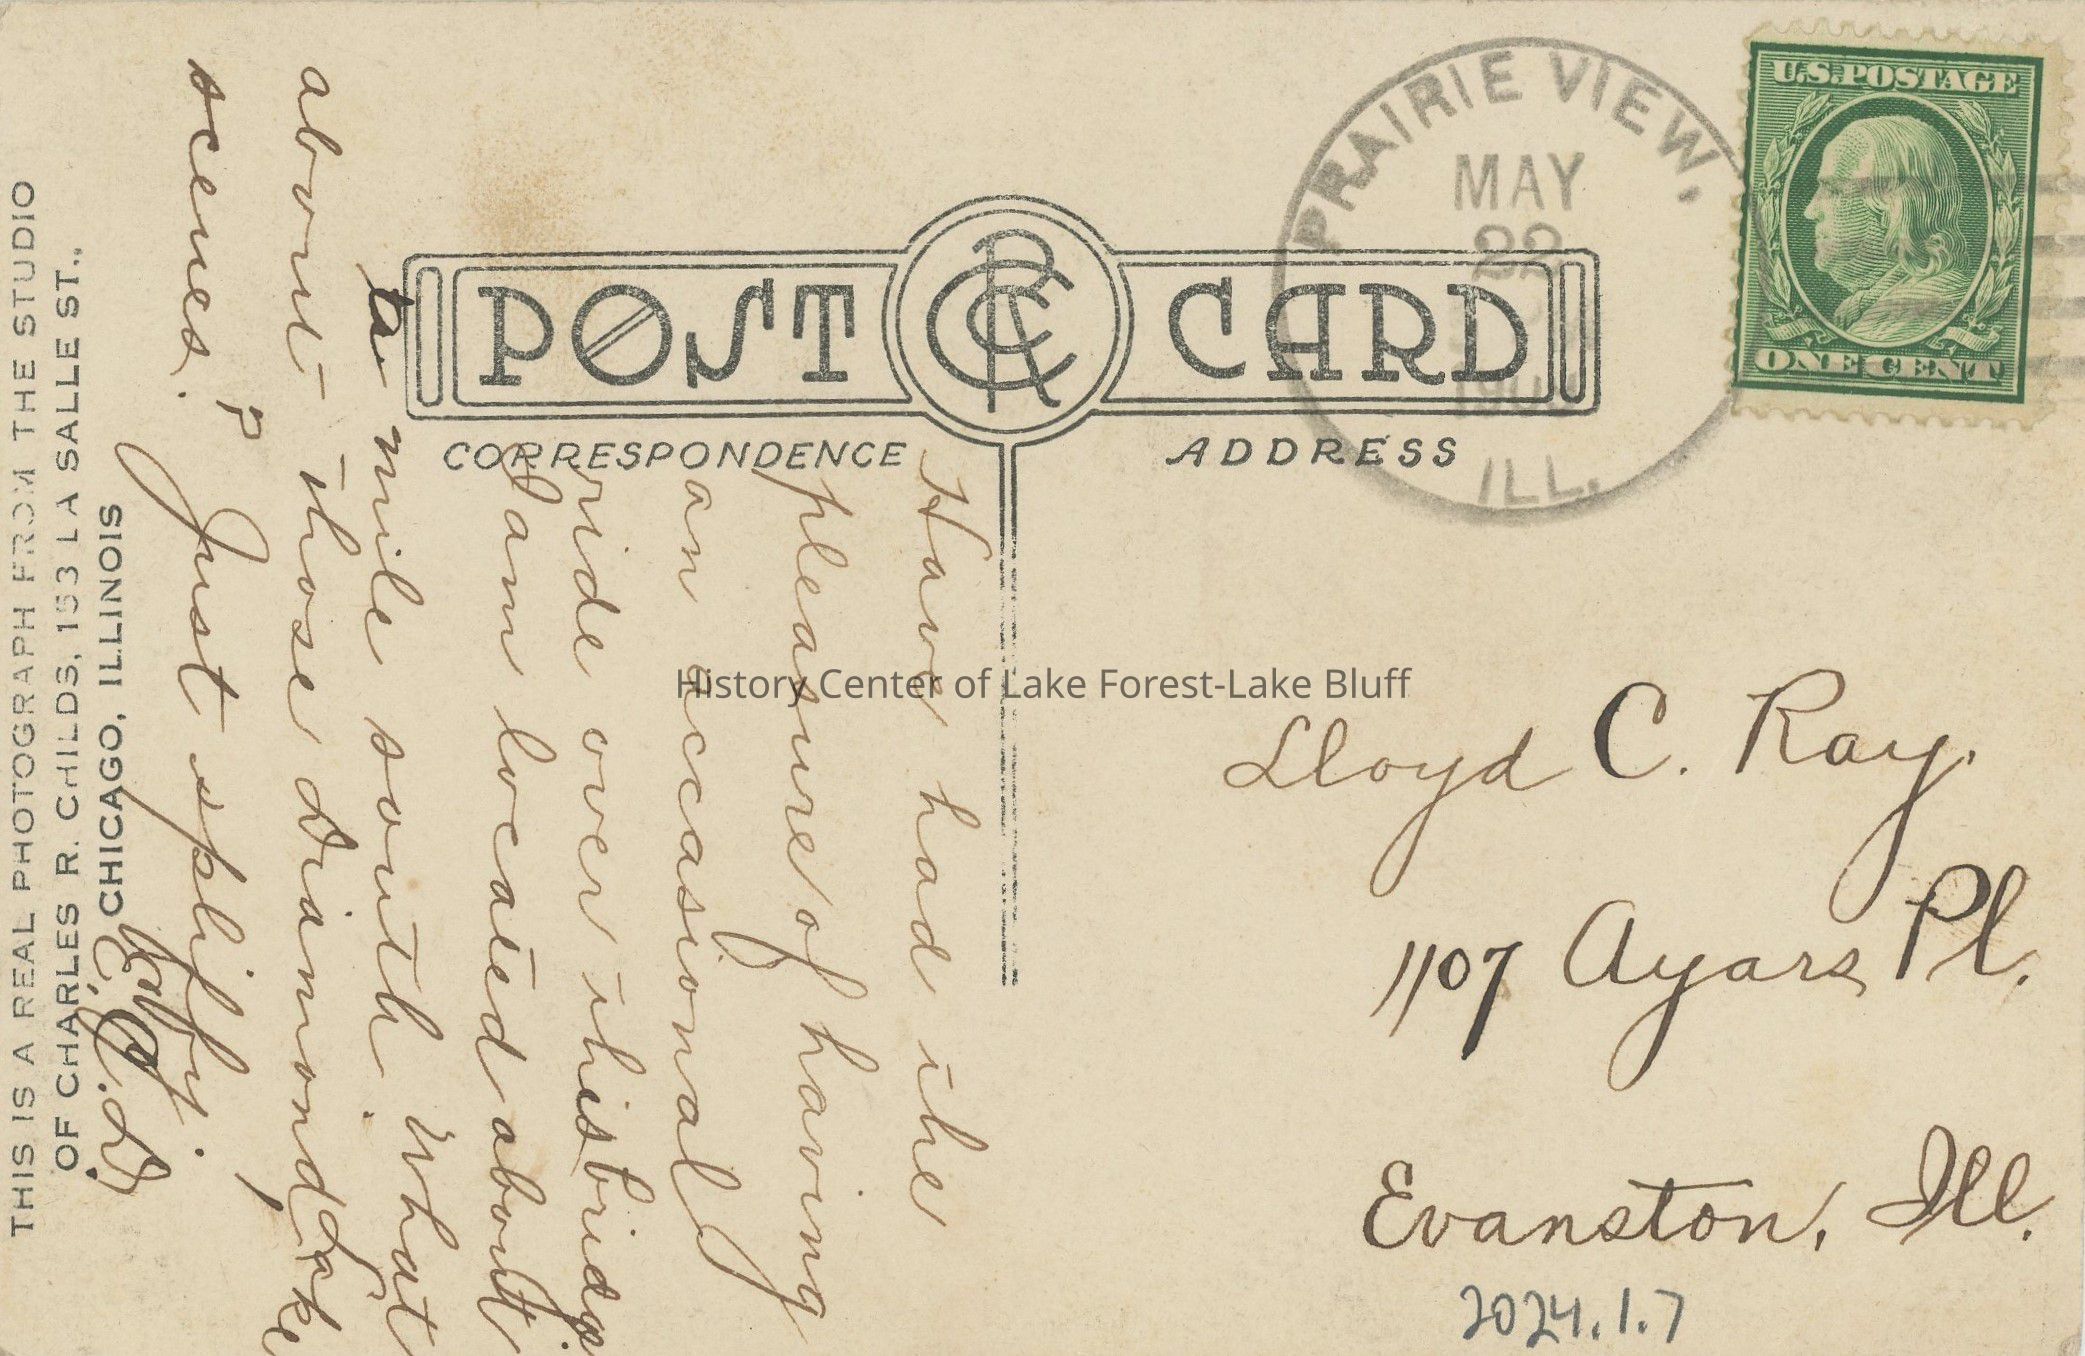 THIS IS A REAL PHOTOGRAPH FROM THE STUDIO
OF CHARLES R. CHILDS, 153 LA SALLE ST.,
CHICAGO, ILLINOIS
POST CARD
CRC
CORRESPONDENCE
ADDRESS
PRAIRIE VIEW,
MAY
22
ILL.
U.S.POSTAGE
ONE CENT
Have had the
pleasure of having
an occasional
ride over this bridge.
I am located about
a mile south. What
about those Diamond Lake
scenes? Just splify.
Lloyd C. Ray.
1107 Ayars Pl.
Evanston, Ill.
2024.1.7
History Center of Lake Forest-Lake Bluff